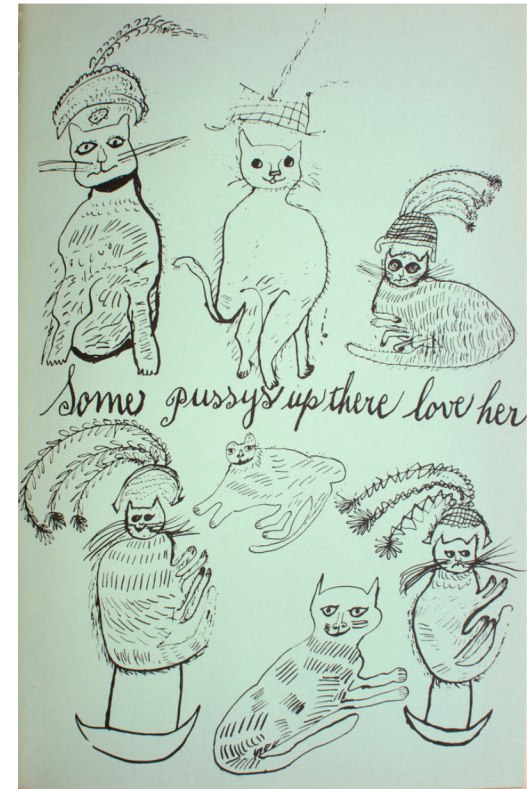 Some pussys up there love her